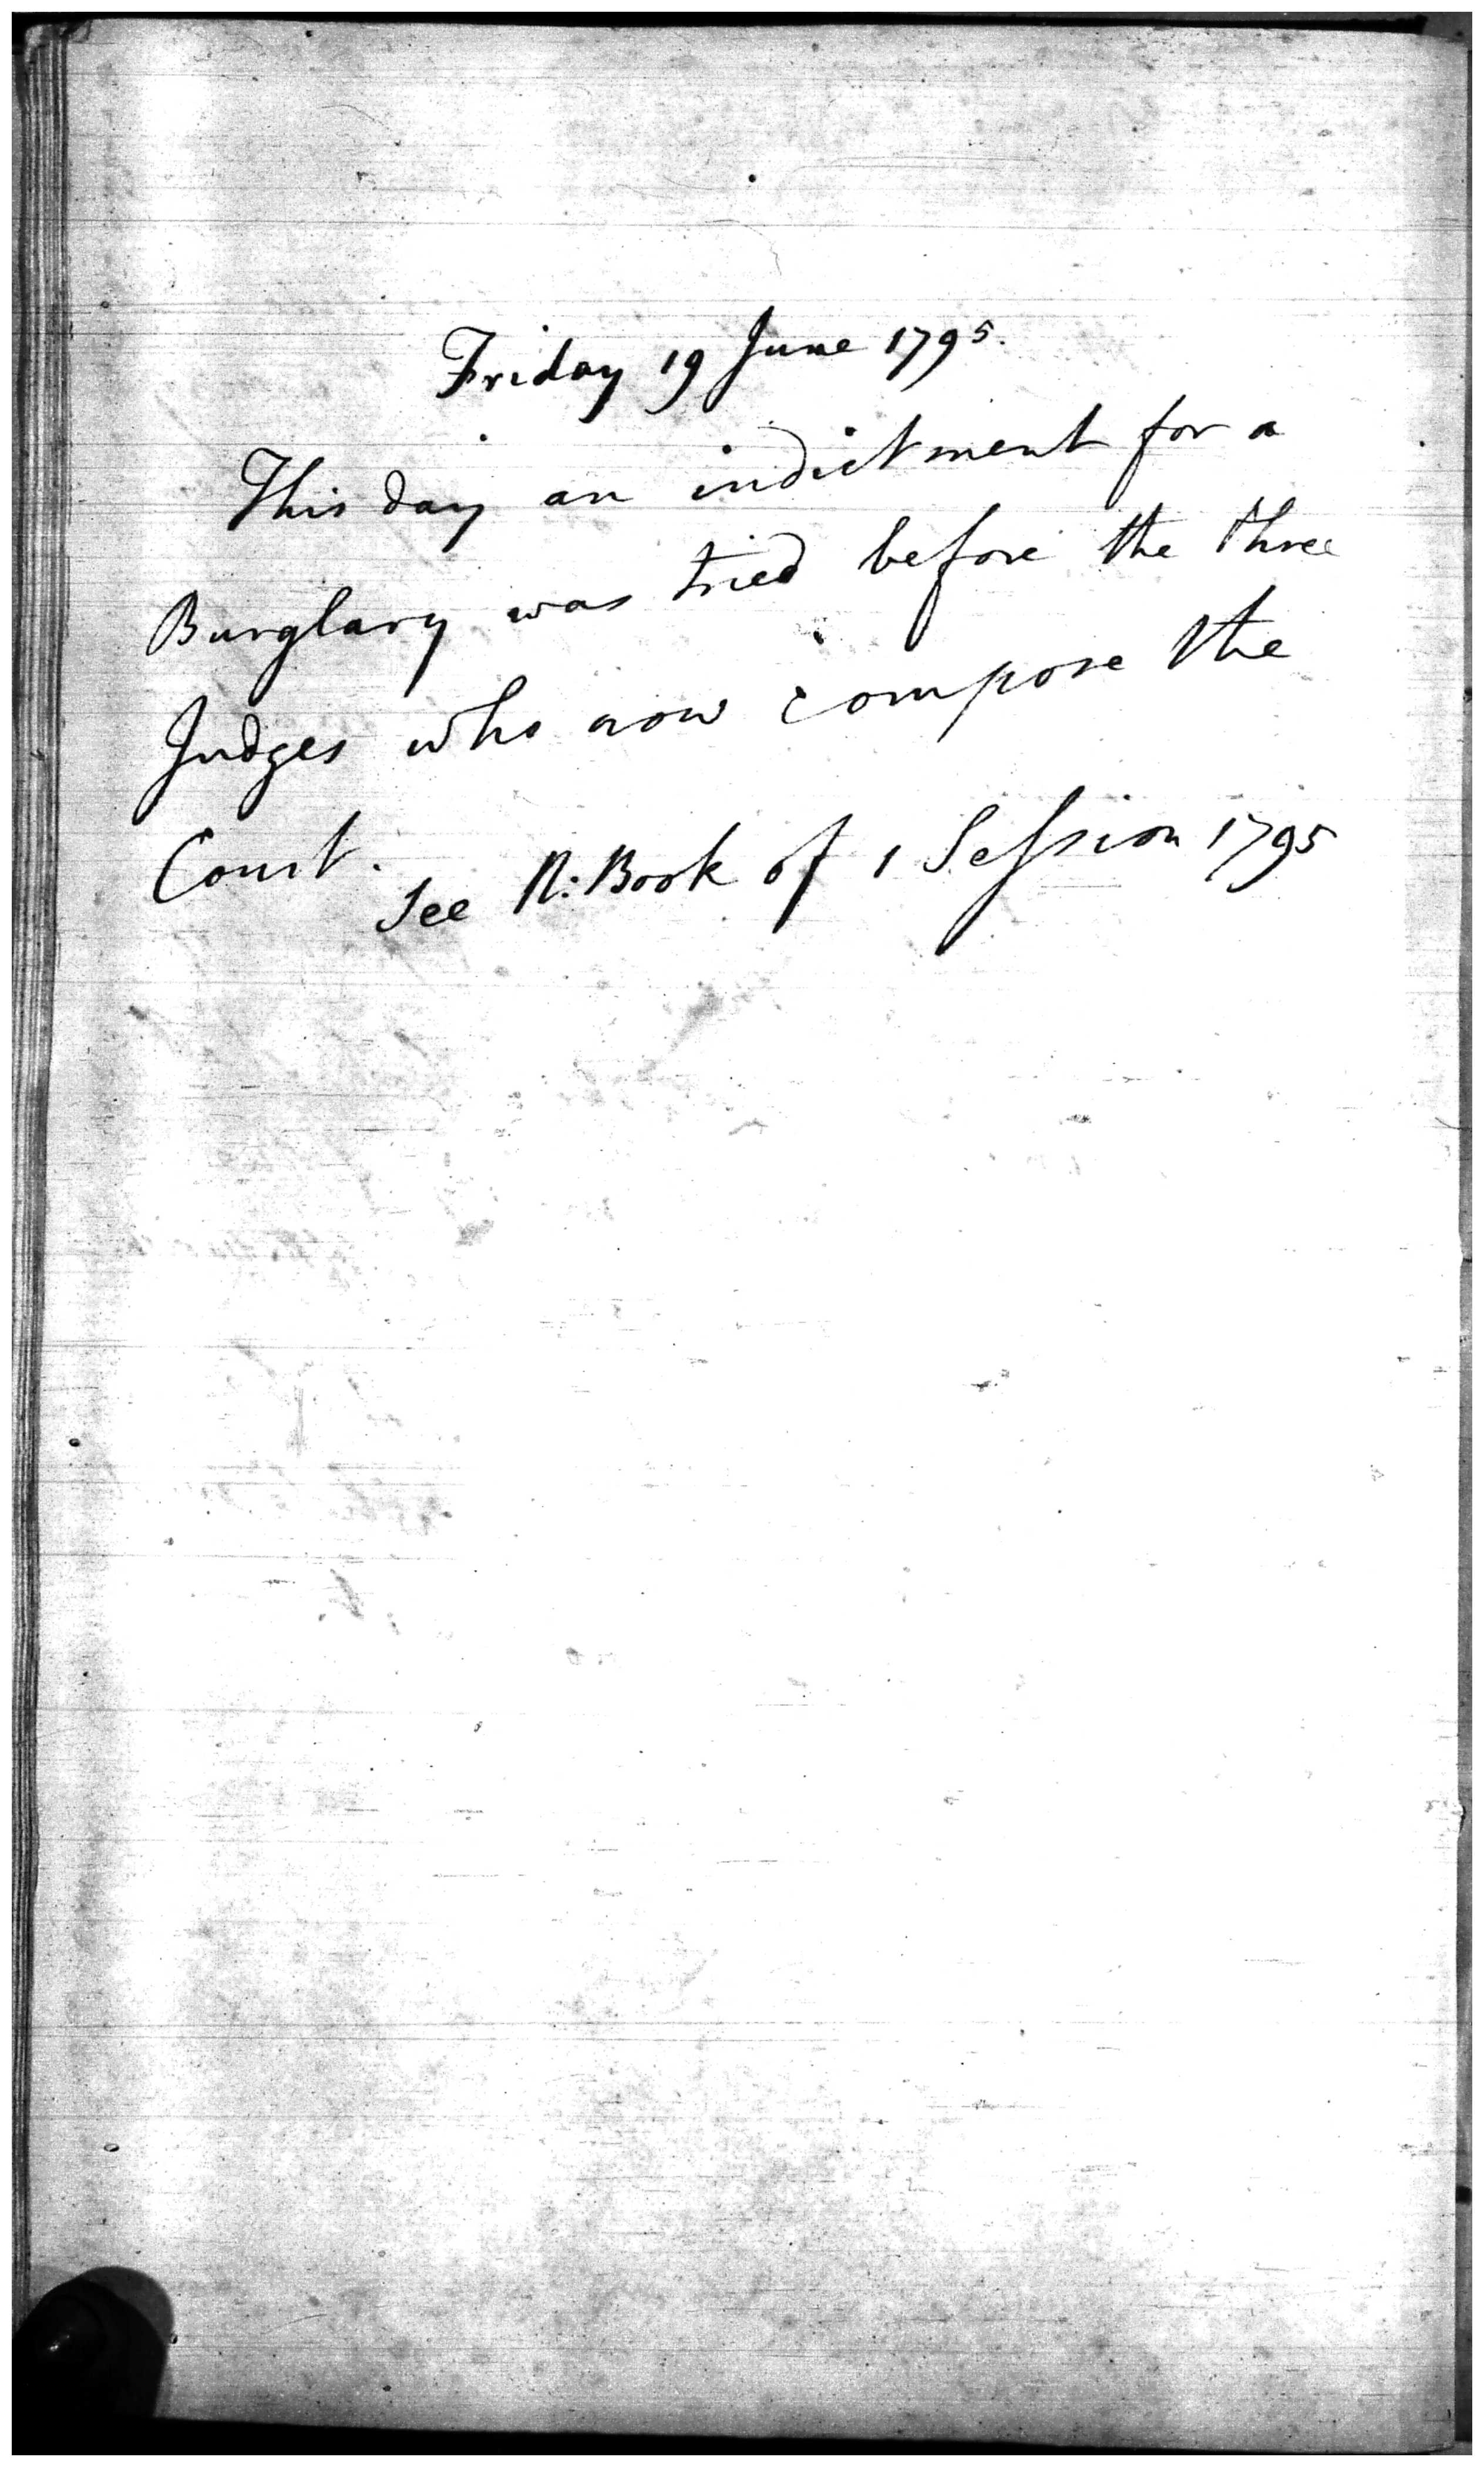 Friday 19 June 1795.
This day an indictment for a
Burglary was tried before the three
Judges who now compose the
Court.
See N: Book of 1 Session 1795